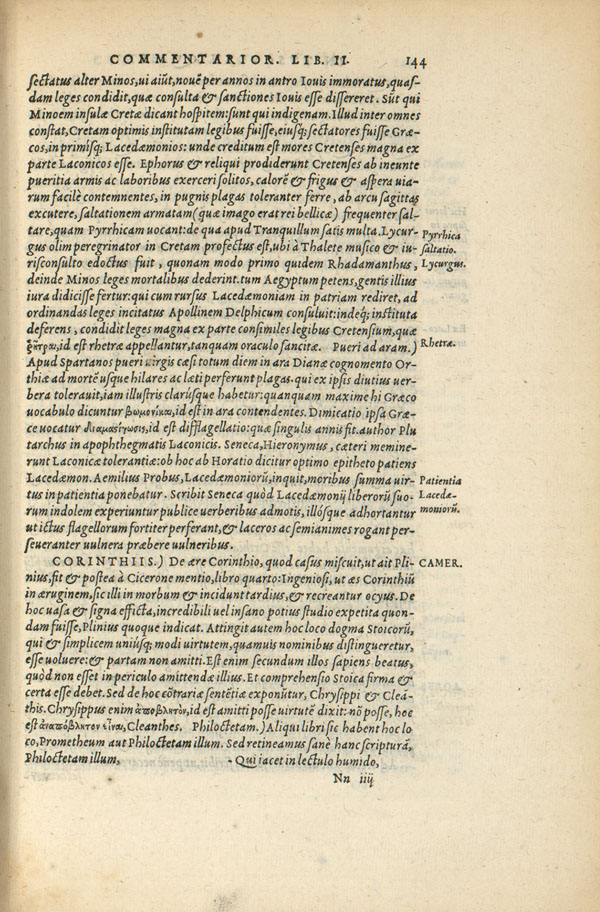 COMMENTARIOR. LIB. II. 144
sectatus alter Minos, ui aiūt, nouē per annos in antro Iouis immoratus, quas-
dam leges condidit, quæ consulta & sanctiones Iouis esse dissereret. Sūt qui
Minoem insulæ Cretæ dicant hospitem: sunt qui indigenam. Illud inter omnes
constat, Cretam optimis institutam legibus fuisse, eiusq; sectatores fuisse Græ-
cos, in primisq; Lacedæmonios: unde creditum est mores Cretenses magna ex
parte Laconicos esse. Ephorus & reliqui prodiderunt Cretenses ab ineunte
pueritia armis ac laboribus exerceri solitos, calorē & frigus & aspera uia-
rum facilè contemnentes, in pugnis plagas toleranter ferre, ab arcu sagittas
excutere, saltationem armatam (quæ imago erat rei bellicæ) frequenter sal-
tare, quam Pyrrhicam uocant: de qua apud Tranquillum satis multa. Lycur-
Pyrrhica
gus olim peregrinator in Cretam profectus est, ubi à Thalete musico & iu-
saltatio.
risconsulto edoctus fuit, quonam modo primo quidem Rhadamanthus,
Lycurgus.
deinde Minos leges mortalibus dederint. tum Aegyptum petens, gentis illius
iura didicisse fertur: qui cum rursus Lacedæmoniam in patriam rediret, ad
ordinandas leges incitatus Apollinem Delphicum consuluit: indeq; instituta
deferens, condidit leges magna ex parte consimiles legibus Cretensium, quæ
ῥῆτραι, id est rhetræ appellantur, tanquam oraculo sancitæ. Pueri ad aram.)
Rhetræ.
Apud Spartanos pueri uirgis cæsi totum diem in ara Dianæ cognomento Or-
thiæ ad mortē usque hilares ac læti perferunt plagas. qui ex ipsis diutius uer-
bera tolerauit, iam illustris clarúsque habetur: quanquam maxime hi Græco
uocabulo dicuntur βωμονίκαι, id est in ara contendentes. Dimicatio ipsa Græ-
ce uocatur διαμαςίγωσις, id est difflagellatio: quæ singulis annis fit. author Plu
tarchus in apophthegmatis Laconicis. Seneca, Hieronymus, cæteri memine-
runt Laconicæ tolerantiæ: ob hoc ab Horatio dicitur optimo epitheto patiens
Lacedæmon. Aemilius Probus, Lacedæmoniorū, inquit, moribus summa uir-
Patientia
tus in patientia ponebatur. Scribit Seneca quòd Lacedæmonij liberorū suo-
Lacedæ-
rum indolem experiuntur publice uerberibus admotis, illósque adhortantur
moniorū.
ut ictus flagellorum fortiter perferant, & laceros ac semianimes rogant per-
seuerantur uulnera præbere uulneribus.
CORINTHIIS.) De ære Corinthio, quod casus miscuit, ut ait Pli-
CAMER.
nius, fit & postea à Cicerone mentio, libro quarto: Ingeniosi, ut æs Corinthiū
in æruginem, sic illi in morbum & incidunt tardius, & recreantur ocyus. De
hoc uasa & signa efficta, incredibili uel insano potius studio expetita quon-
dam fuisse, Plinius quoque indicat. Attingit autem hoc loco dogma Stoicorū,
qui & simplicem uniusq; modi uirtutem, quamuis nominibus distingueretur,
esse uoluere: & partam non amitti. Est enim secundum illos sapiens beatus,
quòd non esset in periculo amittendæ illius. Et comprehensio Stoica firma &
certa esse debet. Sed de hoc cōtrariæ sentētiæ exponūtur, Chrysippi & Cleā-
this. Chrysippus enim ἀποβλητὸν, id est amitti posse uirtutē dixit: nō posse, hoc
est ἀναπόβλητον εἶναι, Cleanthes. Philoctetam.) Aliqui libri sic habent hoc lo
co, Prometheum aut Philoctetam illum. Sed retineamus sanè hanc scripturā,
Philoctetam illum, - Qui iacet in lectulo humido,
Nn iiij